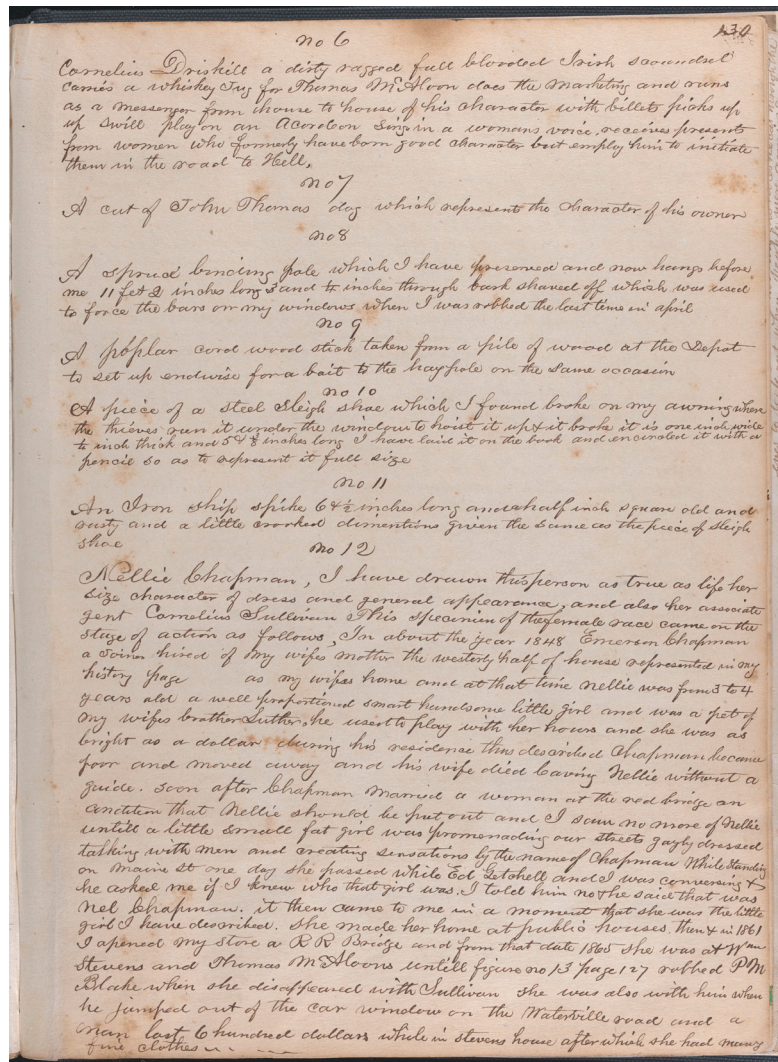 130
no 6
Cornelius Driskill a dirty ragged full blooded Irish scoundrel
carries a whiskey Jug for Thomas McAloon does the marketing and runs
as a messenger from house to house of his character with billets picks up
up swill play on an Acordeon Sing in a womans voice, receives presents
from women who formerly have born good character but employ him to initiate
them in the road to Hell,
no 7
A cut of John Thomas dog which represents the character of his owner
no 8
A spruce binding pole which I have preserved and now hangs before
me 11 feet 2 inches long 3 and ½ inches through bark shaved off which was used
to force the bars on my windows when I was robbed the last time in april
no 9
A poplar cord wood stick taken from a pile of wood at the Depot
to set up endwise for a bait to the hay pole on the same occasion
no 10
A piece of a steel Sleigh shoe which I found broke on my awning when
the thieves run it under the window to hoist it up & it broke it is one inch wide
inch thick and 5 inches long I have laid it on the book and encircled it with a
pencil so as to represent it full size
no 11
An Iron ship spike 6 & ½ inches long and a half inch square old and
rusty and a little crooked dimentions given the same as the piece of sleigh
shoe
no 12
Nellie Chapman, I have drawn this person as true as life her
size character of dress and general appearance, and also her associate
gent Cornelius Sullivan This specimen of the female race came on the
stage of action as follows, In about the year 1848 Emerson Chapman
a Joiner hired of my wifes mother the westerly half of house represented in my
history page as my wifes home and at that time Nellie was from 3 to 4
years old a well proportioned smart handsome little girl and was a pet of
my wifes brother Luther, he used to play with her hours and she was as
bright as a dollar during his residence thus described Chapman became
poor and moved away and his wife died leaving Nellie without a
guide. soon after Chapman married a woman at the red bridge on
condition that Nellie should be put out and I saw no more of Nellie
untill a little small fat girl was promenading our streets gayly dressed
talking with men and creating sensations by the name of Chapman While standing
on Maine St one day she passed while Ed Getchell and I was conversing &
he asked me if I knew who that girl was. I told him no & he said that was
Nel Chapman. it then came to me in a moment that she was the little
girl I have described. she made her home at public houses. then & in 1861
I opened my store a R R Bridge and from that date 1865 she was at Wm
Stevens and Thomas McAloons untill figure no 13 page 127 robbed P M
Blake when she disappeared with Sullivan she was also with him when
he jumped out of the car window on the Waterville road and a
man lost 6 hundred dollars while in stevens house after which she had many
fine clothes